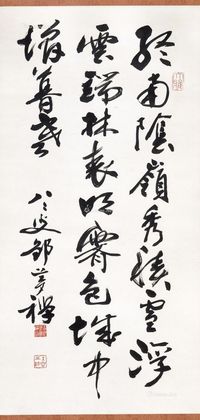 終南陰嶺秀積雪浮
雲端林表明霽色城中
增暮寒
八二叟鄒夢禪